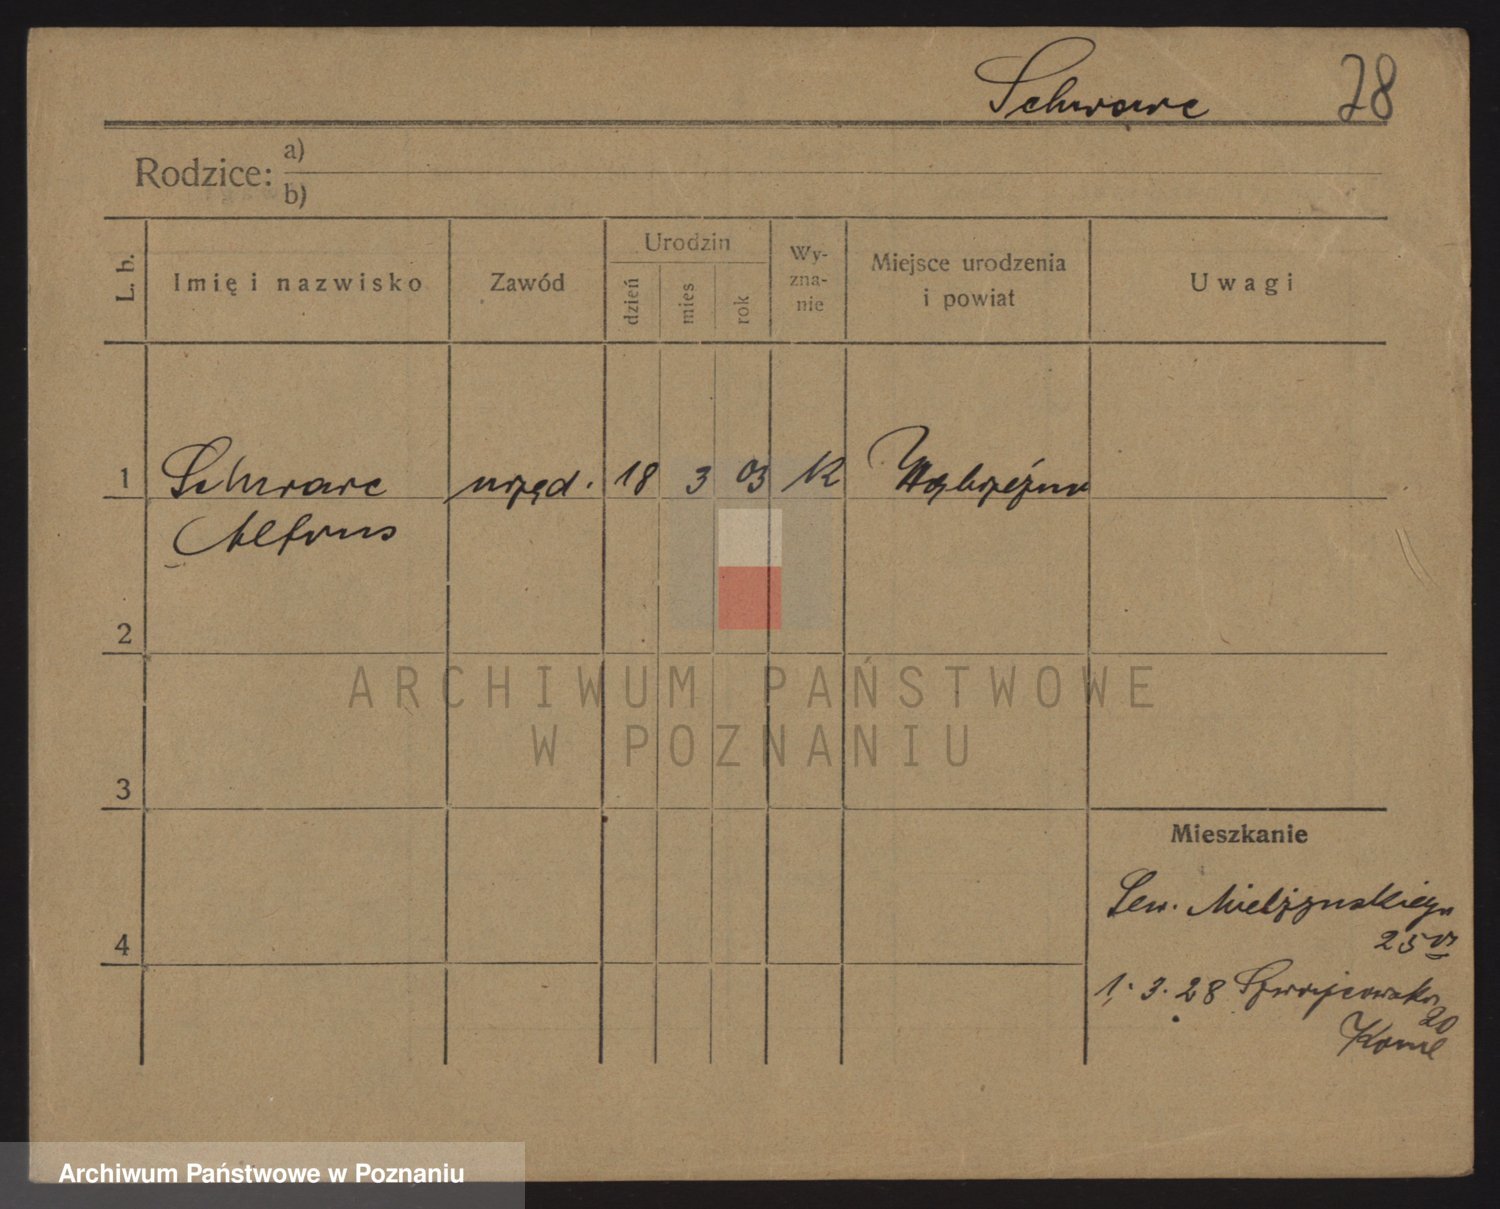 Schwarc 28
Rodzice: a)
b)
L. b. Imię i nazwisko Zawód Urodzin dzień mies rok Wy-zna-nie Miejsce urodzenia i powiat Uwagi
1 Schwarc urzęd. 18 3 03 K Wąbrzeźno
Alfons
2
3
Mieszkanie
Sew. Mielżyńskiego
4
25
1. 3. 28 Szwajcarska
20
ARCHIWUM PAŃSTWOWE
W POZNANIU
Archiwum Państwowe w Poznaniu